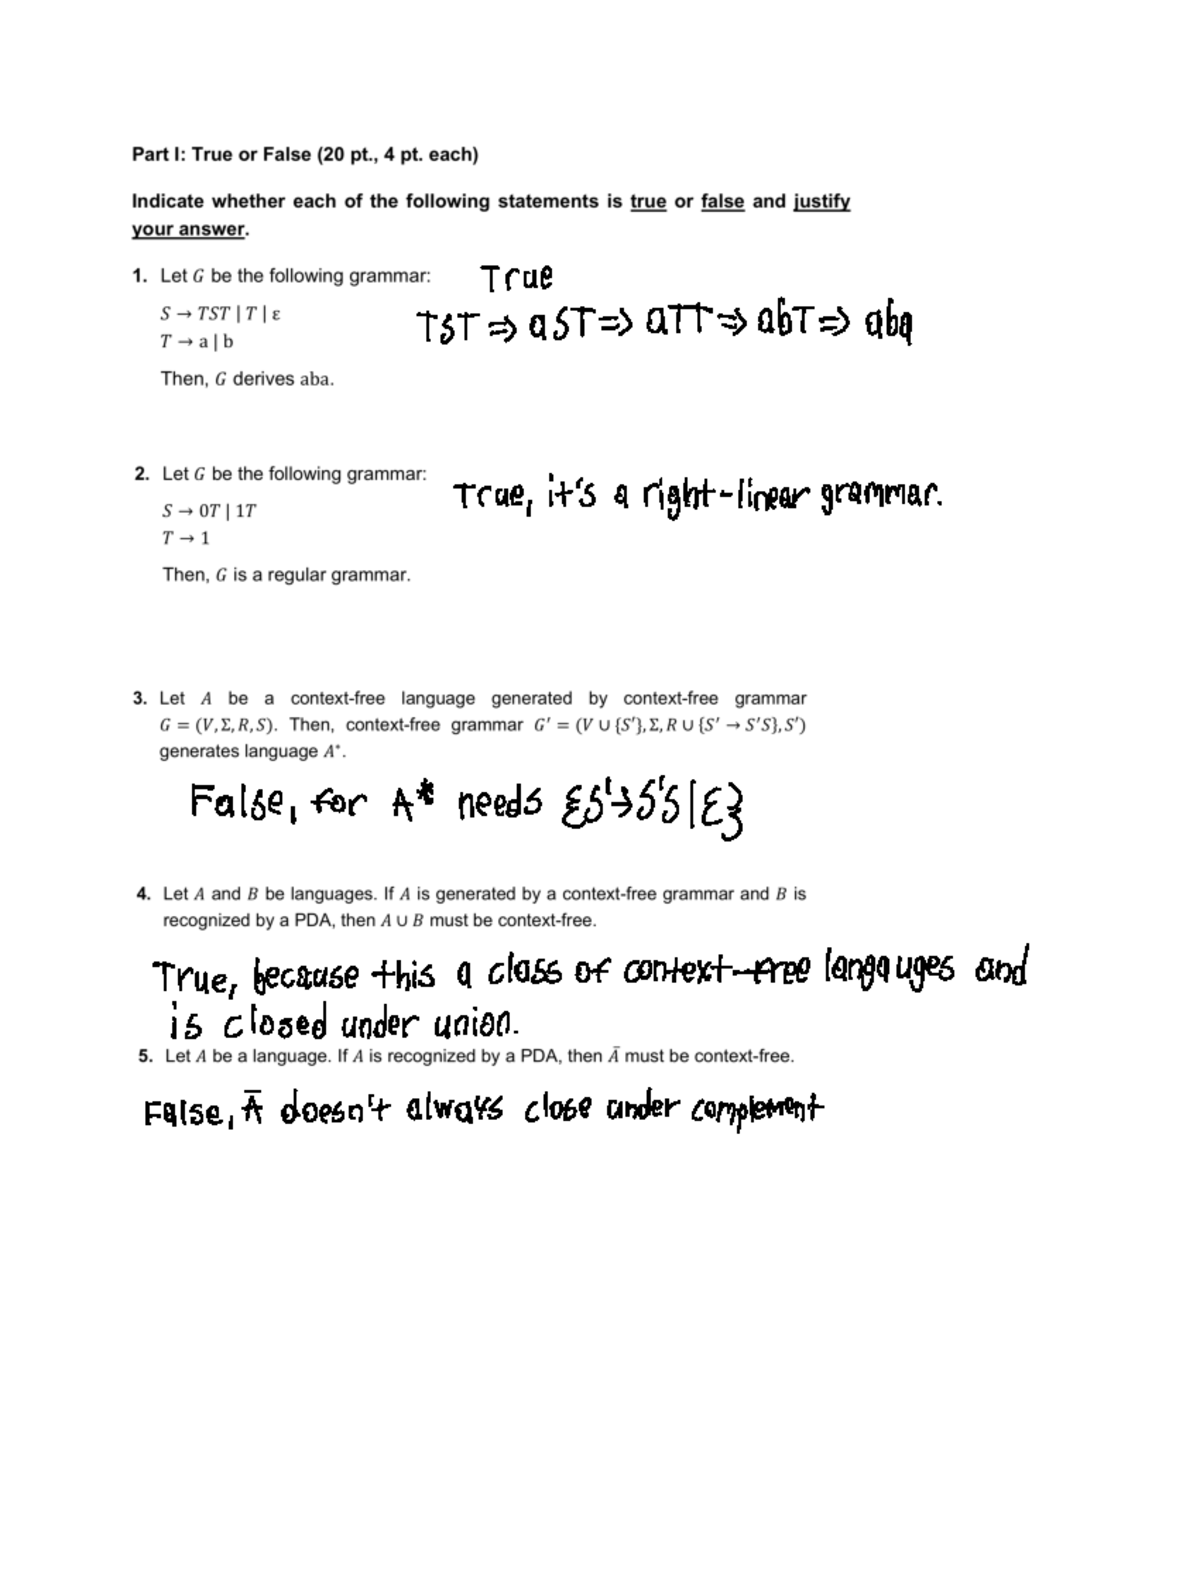 Part I: True or False (20 pt., 4 pt. each)
Indicate whether each of the following statements is true or false and justify
your answer.
1. Let G be the following grammar:
True
S → TST | T | ε
TST ⇒ aST ⇒ aTT ⇒ abT ⇒ aba
T → a | b
Then, G derives aba.
2. Let G be the following grammar:
True, it's a right-linear grammar.
S → 0T | 1T
T → 1
Then, G is a regular grammar.
3. Let A be a context-free language generated by context-free grammar
G = (V, Σ, R, S). Then, context-free grammar G′ = (V ∪ {S′}, Σ, R ∪ {S′ → S′S}, S′)
generates language A*.
False, for A* needs {S'→S'S|ε}
4. Let A and B be languages. If A is generated by a context-free grammar and B is
recognized by a PDA, then A ∪ B must be context-free.
True, because this a class of context-free langauges and
is closed under union.
5. Let A be a language. If A is recognized by a PDA, then Ā must be context-free.
False, Ā doesn't always close under complement